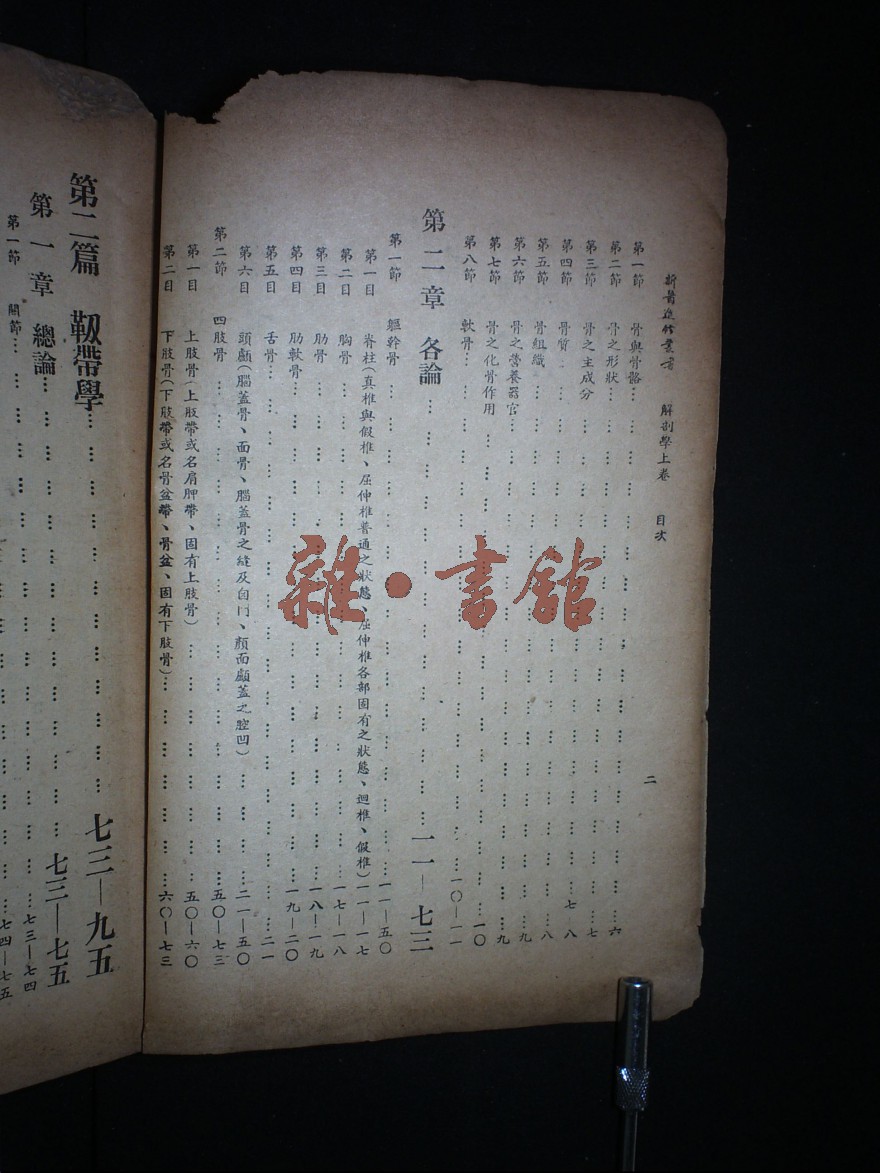 解剖學上卷 目次 二
第一節 骨與骨骼 六
第二節 骨之形狀 六—七
第三節 骨之主成分 七
第四節 骨質 七—八
第五節 骨組織 八
第六節 骨之營養器官 九
第七節 骨之化骨作用 九—一〇
第八節 軟骨 一〇—一一
第二章 各論 一一—七三
第一節 軀幹骨 一一—五〇
第一目 脊柱(真椎與假椎、屈伸椎普通之狀態、屈伸椎各部固有之狀態、迴椎、假椎) 一一—一七
第二目 胸骨 一七—一八
第三目 肋骨 一八—一九
第四目 肋軟骨 一九—二〇
第五目 舌骨 二一
第六目 頭顱(腦蓋骨、面骨、腦蓋骨之縫及囟門、顏面顱蓋之腔凹) 二一—五〇
第二節 四肢骨 五〇—七三
第一目 上肢骨(上肢帶或名肩胛帶、固有上肢骨) 五〇—六〇
第二目 下肢骨(下肢帶或名骨盆帶、骨盆、固有下肢骨) 六〇—七三
第二篇 靱帶學 七三—九五
第一章 總論 七三—七五
第一節 關節 七三—七四
七四—七五
雜·書館